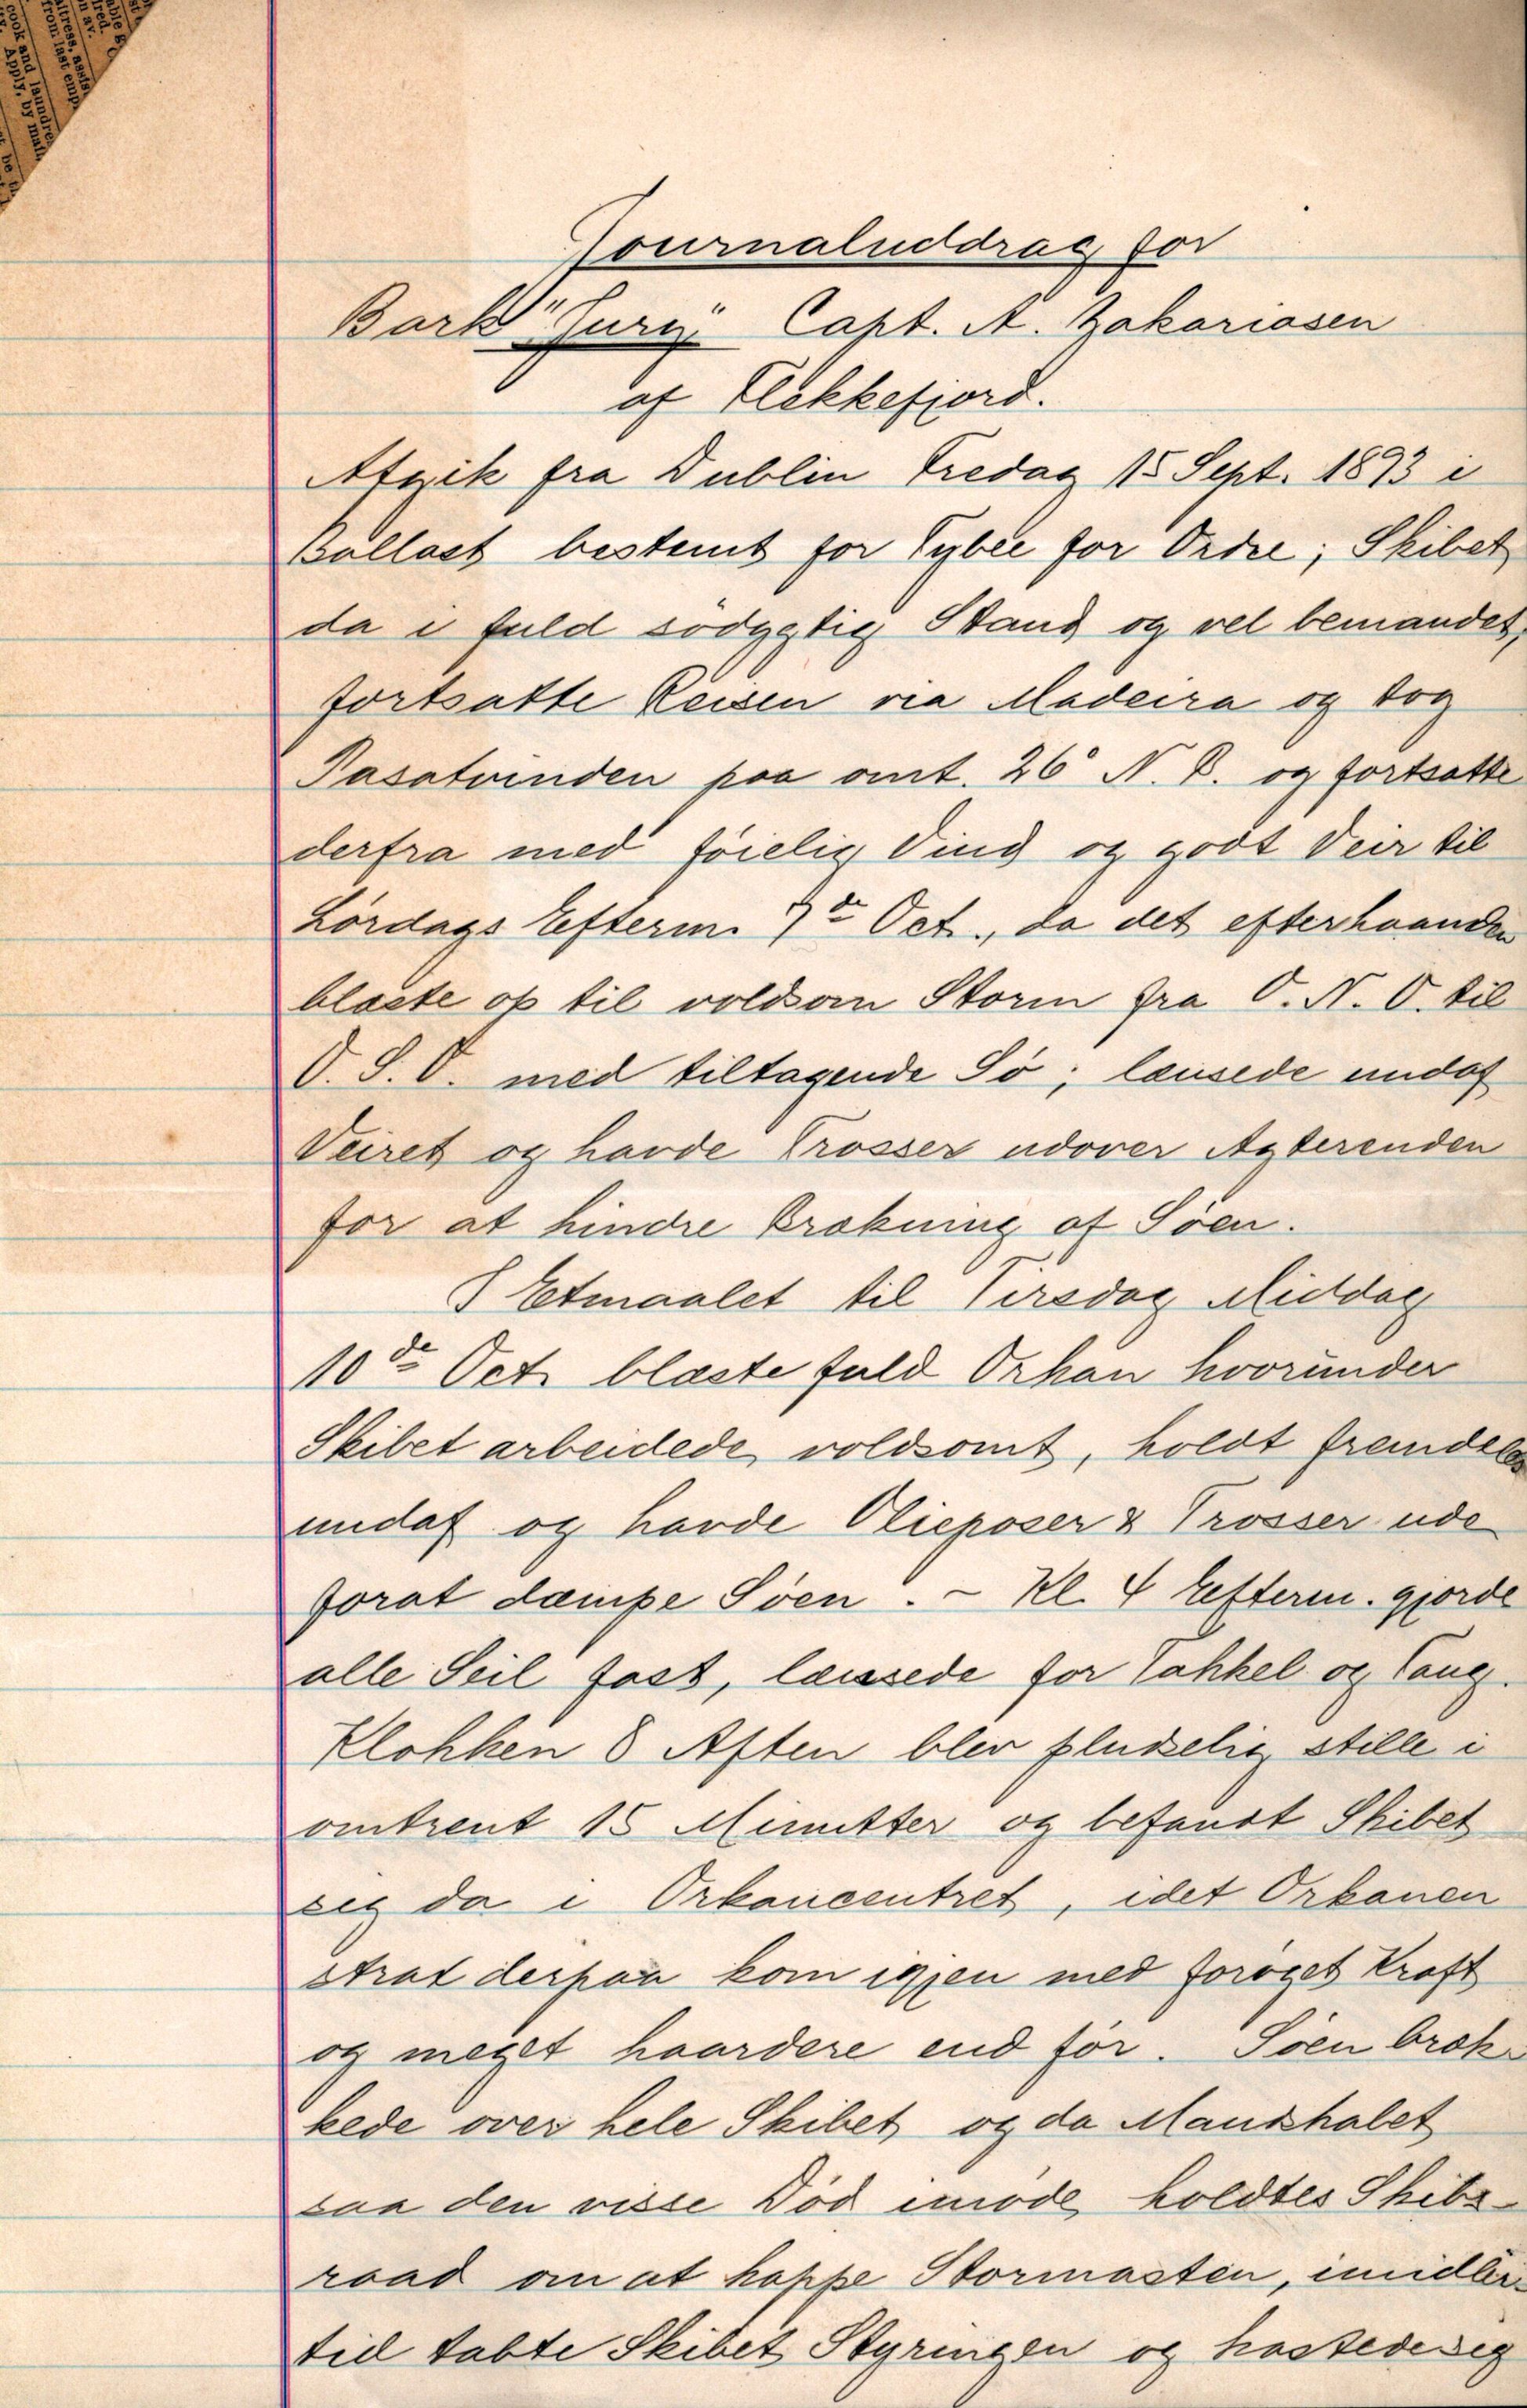 able g
ired.
n av.
itress, assis
from last emp
cook and laundre
Apply, by mail
Journaluddrag for
Bark "Jury" Capt. A. Zakariasen
af Flekkefjord.
Afgik fra Dublin Fredag 15 Sept. 1893 i
Ballast bestemt for Tybee for Ordre; Skibet
da i fuld södygtig Stand og vel bemandet,
fortsatte Reisen via Madeira og tog
Pasatvinden paa omt. 26° N. B. og fortsatte
derfra med föielig Vind og godt Veir til
Lördags Efterm. 7de Oct., da det efterhaanden
blæste op til voldsom Storm fra O. N. O. til
O. S. O. med tiltagende Sö; lænsede undaf
Veiret og havde Trosser udover Agterenden
for at hindre Brækning af Söen.
I Etmaalet til Tirsdag Middag
10de Oct. blæste fuld Orkan hvorunder
Skibet arbeidede voldsomt, holdt fremdeles
undaf og havde Olieposer & Trosser ude
forat dæmpe Söen. - Kl. 4 Efterm. gjorde
alle Seil fast, lænsede for Takkel og Taug.
Klokken 8 Aften blev pludselig stille i
omtrent 15 Minutter og befandt Skibet
sig da i Orkancentret, idet Orkanen
strax derpaa kom igjen med foröget Kraft
og meget haardere end för. Söen bræk-
kede over hele Skibet og da Mandskabet
saa den visse Död imöde holdtes Skibs-
raad om at kappe Stormasten, imidler-
tid tabte Skibet Styringen og kastede sig